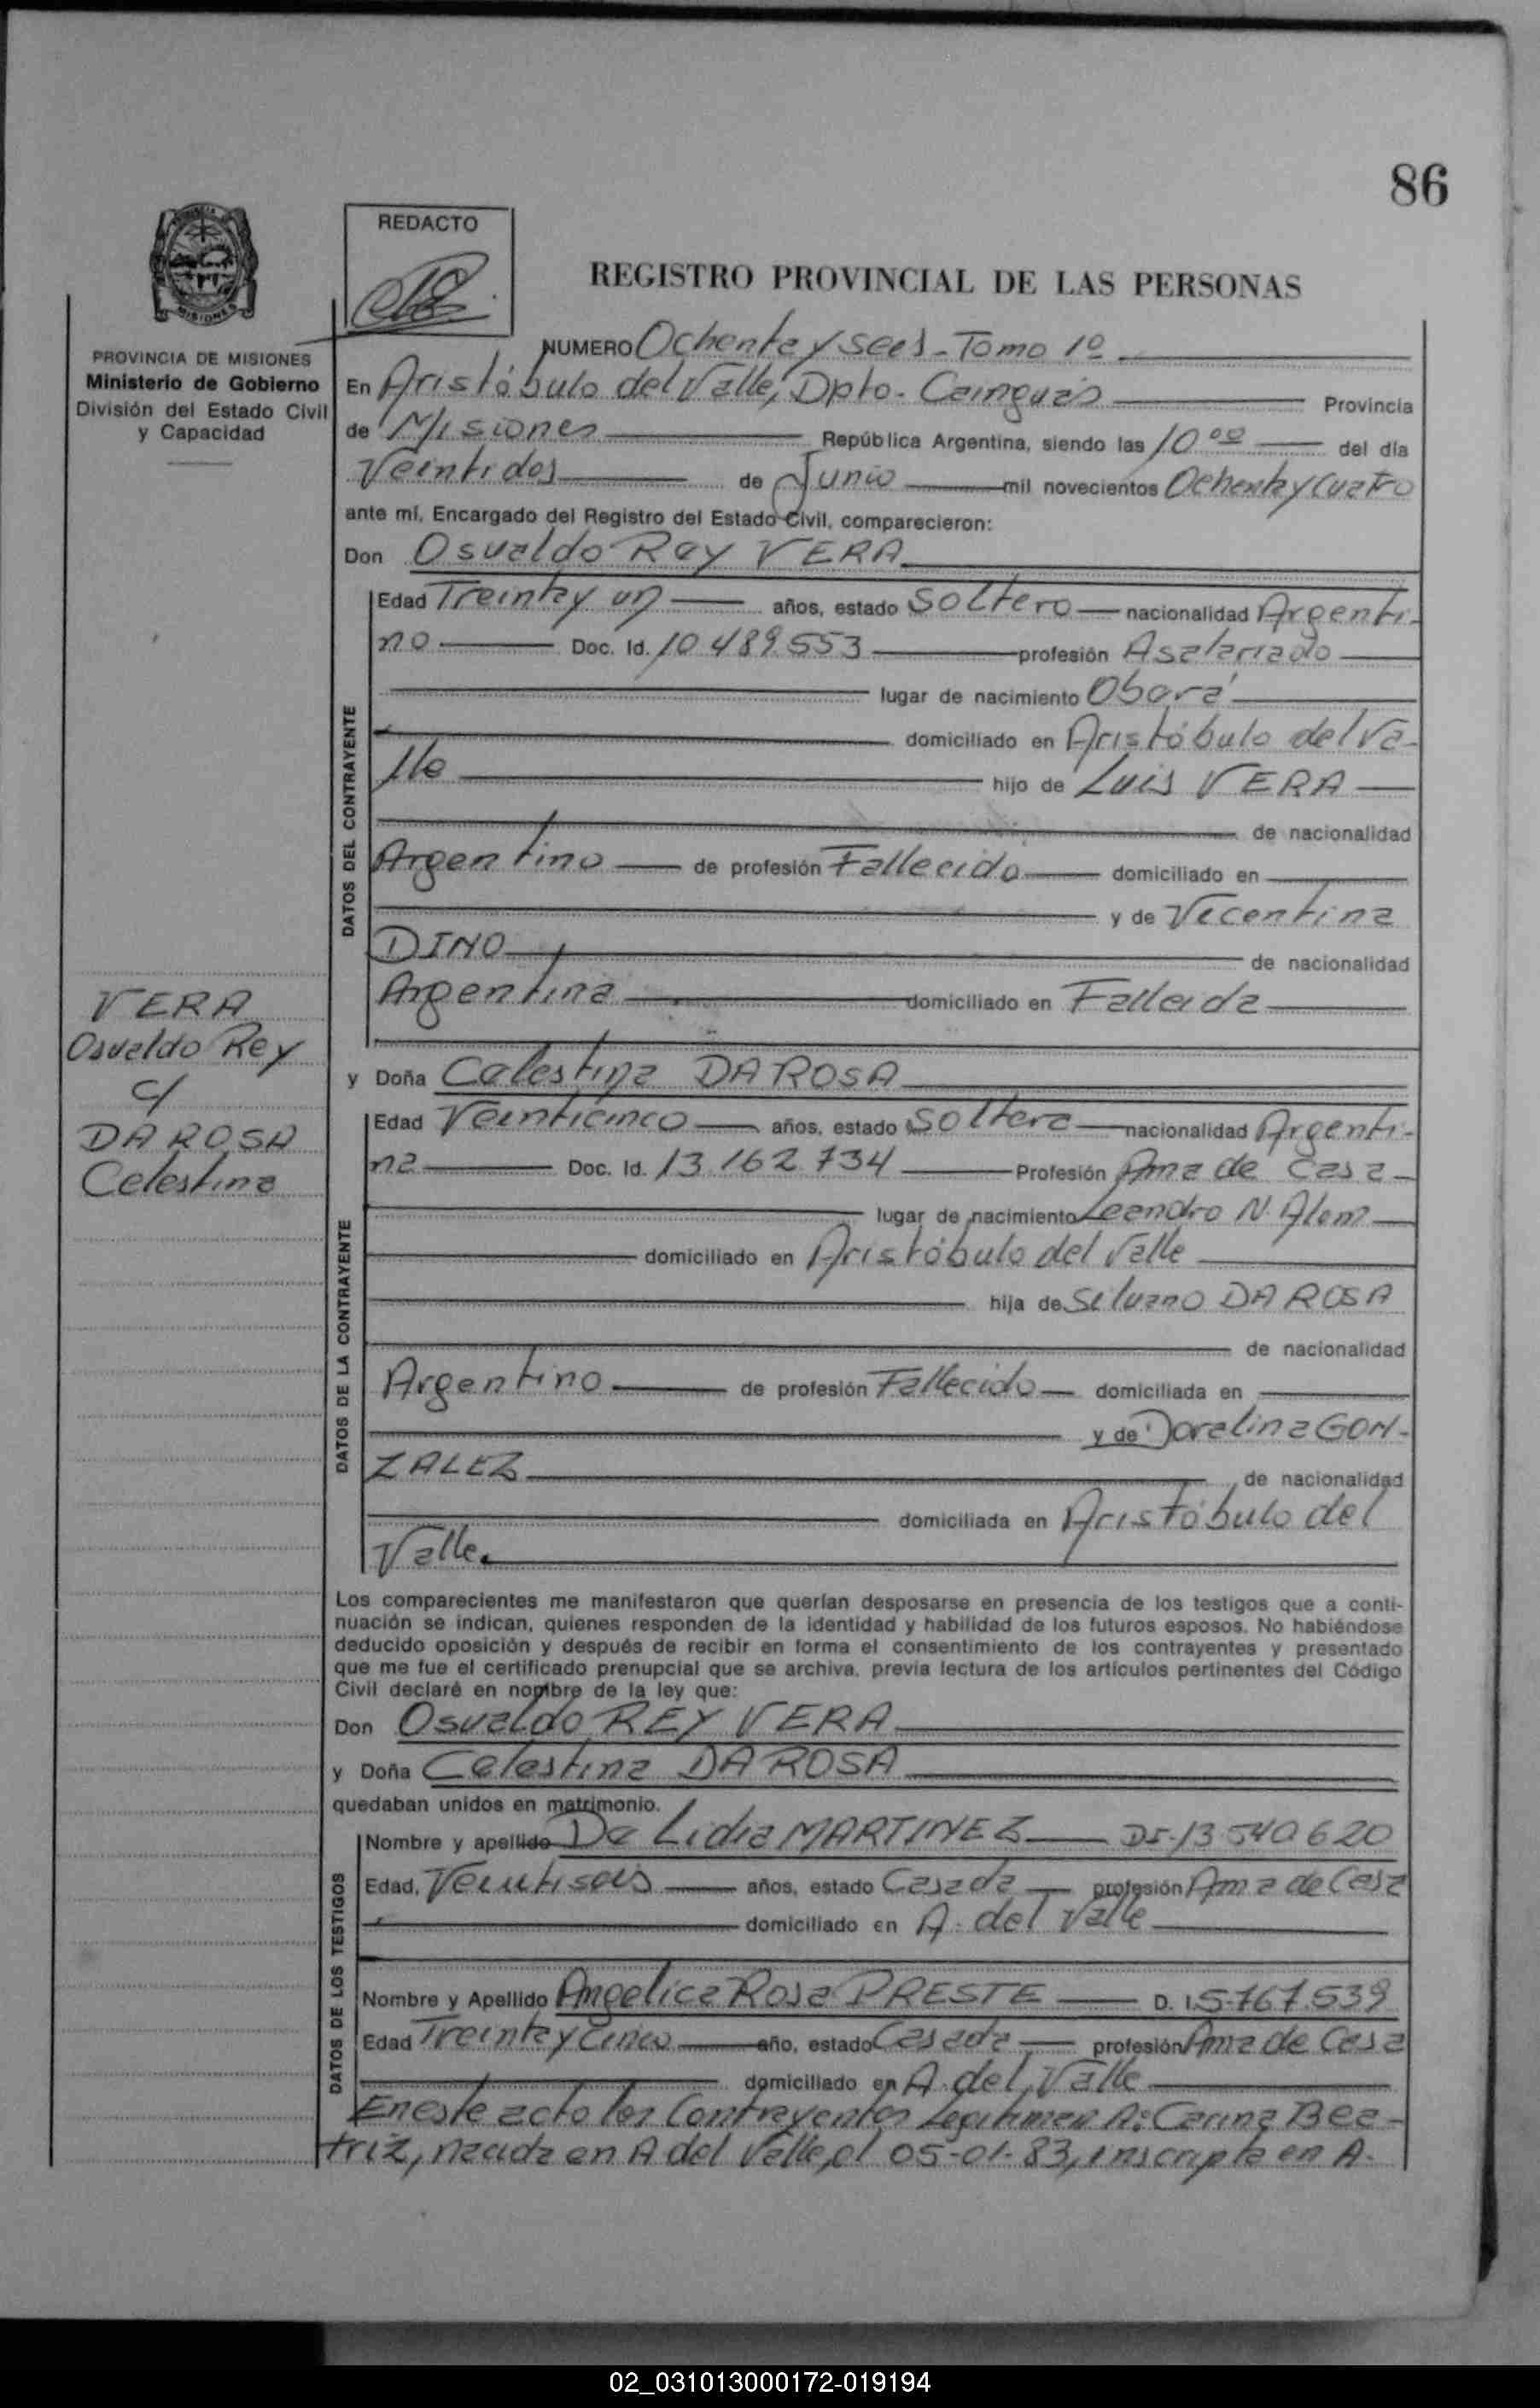 86
REDACTO
REGISTRO PROVINCIAL DE LAS PERSONAS
PROVINCIA DE MISIONES
Ministerio de Gobierno
División del Estado Civil
y Capacidad
NUMERO Ochenta y seis - Tomo 1º
En Aristóbulo del Valle, Dpto. Cainguás Provincia
de Misiones República Argentina, siendo las 10 00 del día
Veintidos de Junio mil novecientos Ochenta y Cuatro
ante mí, Encargado del Registro del Estado Civil, comparecieron:
Don Osvaldo Rey VERA
DATOS DEL CONTRAYENTE
Edad Treinta y un años, estado Soltero nacionalidad Argenti-
no Doc. Id. 10.489.553 profesión Asalariado
lugar de nacimiento Oberá
domiciliado en Aristóbulo del Va-
lle hijo de Luis VERA
de nacionalidad
Argentino de profesión Fallecido domiciliado en
y de Vicentina
DINO de nacionalidad
Argentina domiciliado en Fallecida
VERA
Osvaldo Rey
c/
DA ROSA
Celestina
y Doña Celestina DA ROSA
DATOS DE LA CONTRAYENTE
Edad Veinticinco años, estado Soltera nacionalidad Argenti-
na Doc. Id. 13.162.734 Profesión Ama de Casa
lugar de nacimiento Leandro N. Alem
domiciliado en Aristóbulo del Valle
hija de Silvano DA ROSA
de nacionalidad
Argentino de profesión Fallecido domiciliada en
y de Doralina GON-
ZALEZ de nacionalidad
domiciliada en Aristóbulo del
Valle.
Los comparecientes me manifestaron que querían desposarse en presencia de los testigos que a conti-
nuación se indican, quienes responden de la identidad y habilidad de los futuros esposos. No habiéndose
deducido oposición y después de recibir en forma el consentimiento de los contrayentes y presentado
que me fue el certificado prenupcial que se archiva, previa lectura de los artículos pertinentes del Código
Civil declaré en nombre de la ley que:
Don Osvaldo REY VERA
y Doña Celestina DA ROSA
quedaban unidos en matrimonio.
DATOS DE LOS TESTIGOS
Nombre y apellido De Lidia MARTINEZ DI-13.540.620
Edad, Veintiseis años, estado Casada profesión Ama de Casa
domiciliado en A. del Valle
Nombre y Apellido Angelica Rosa PRESTE D. I. 5.767.539
Edad Treinta y Cinco año, estado Casada profesión Ama de Casa
domiciliado en A. del Valle
En este acto los Contrayentes Legitiman A: Carina Bea-
triz, nacida en A del Valle, el 05-01-83, inscripta en A.
02_031013000172-019194